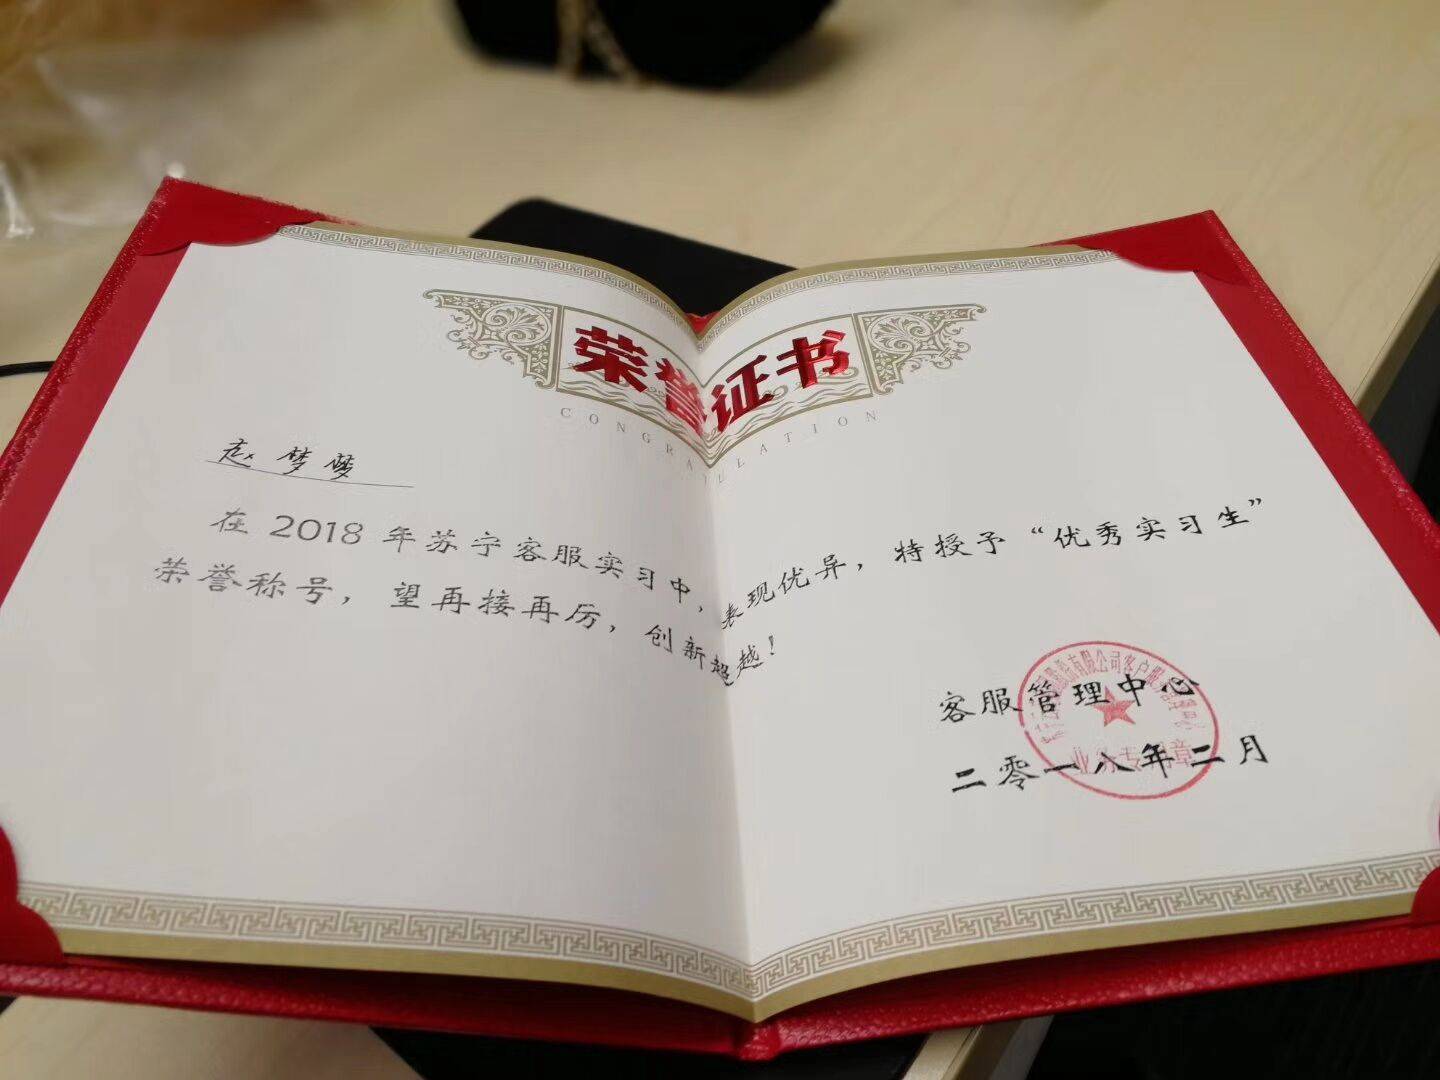 荣誉证书
CONGRATULATION
赵梦梦
在2018年苏宁客服实习中，表现优异，特授予“优秀实习生”
荣誉称号，望再接再厉，创新超越！
客服管理中心
二零一八年二月
有限公司客户服务管理中心
业务专用章